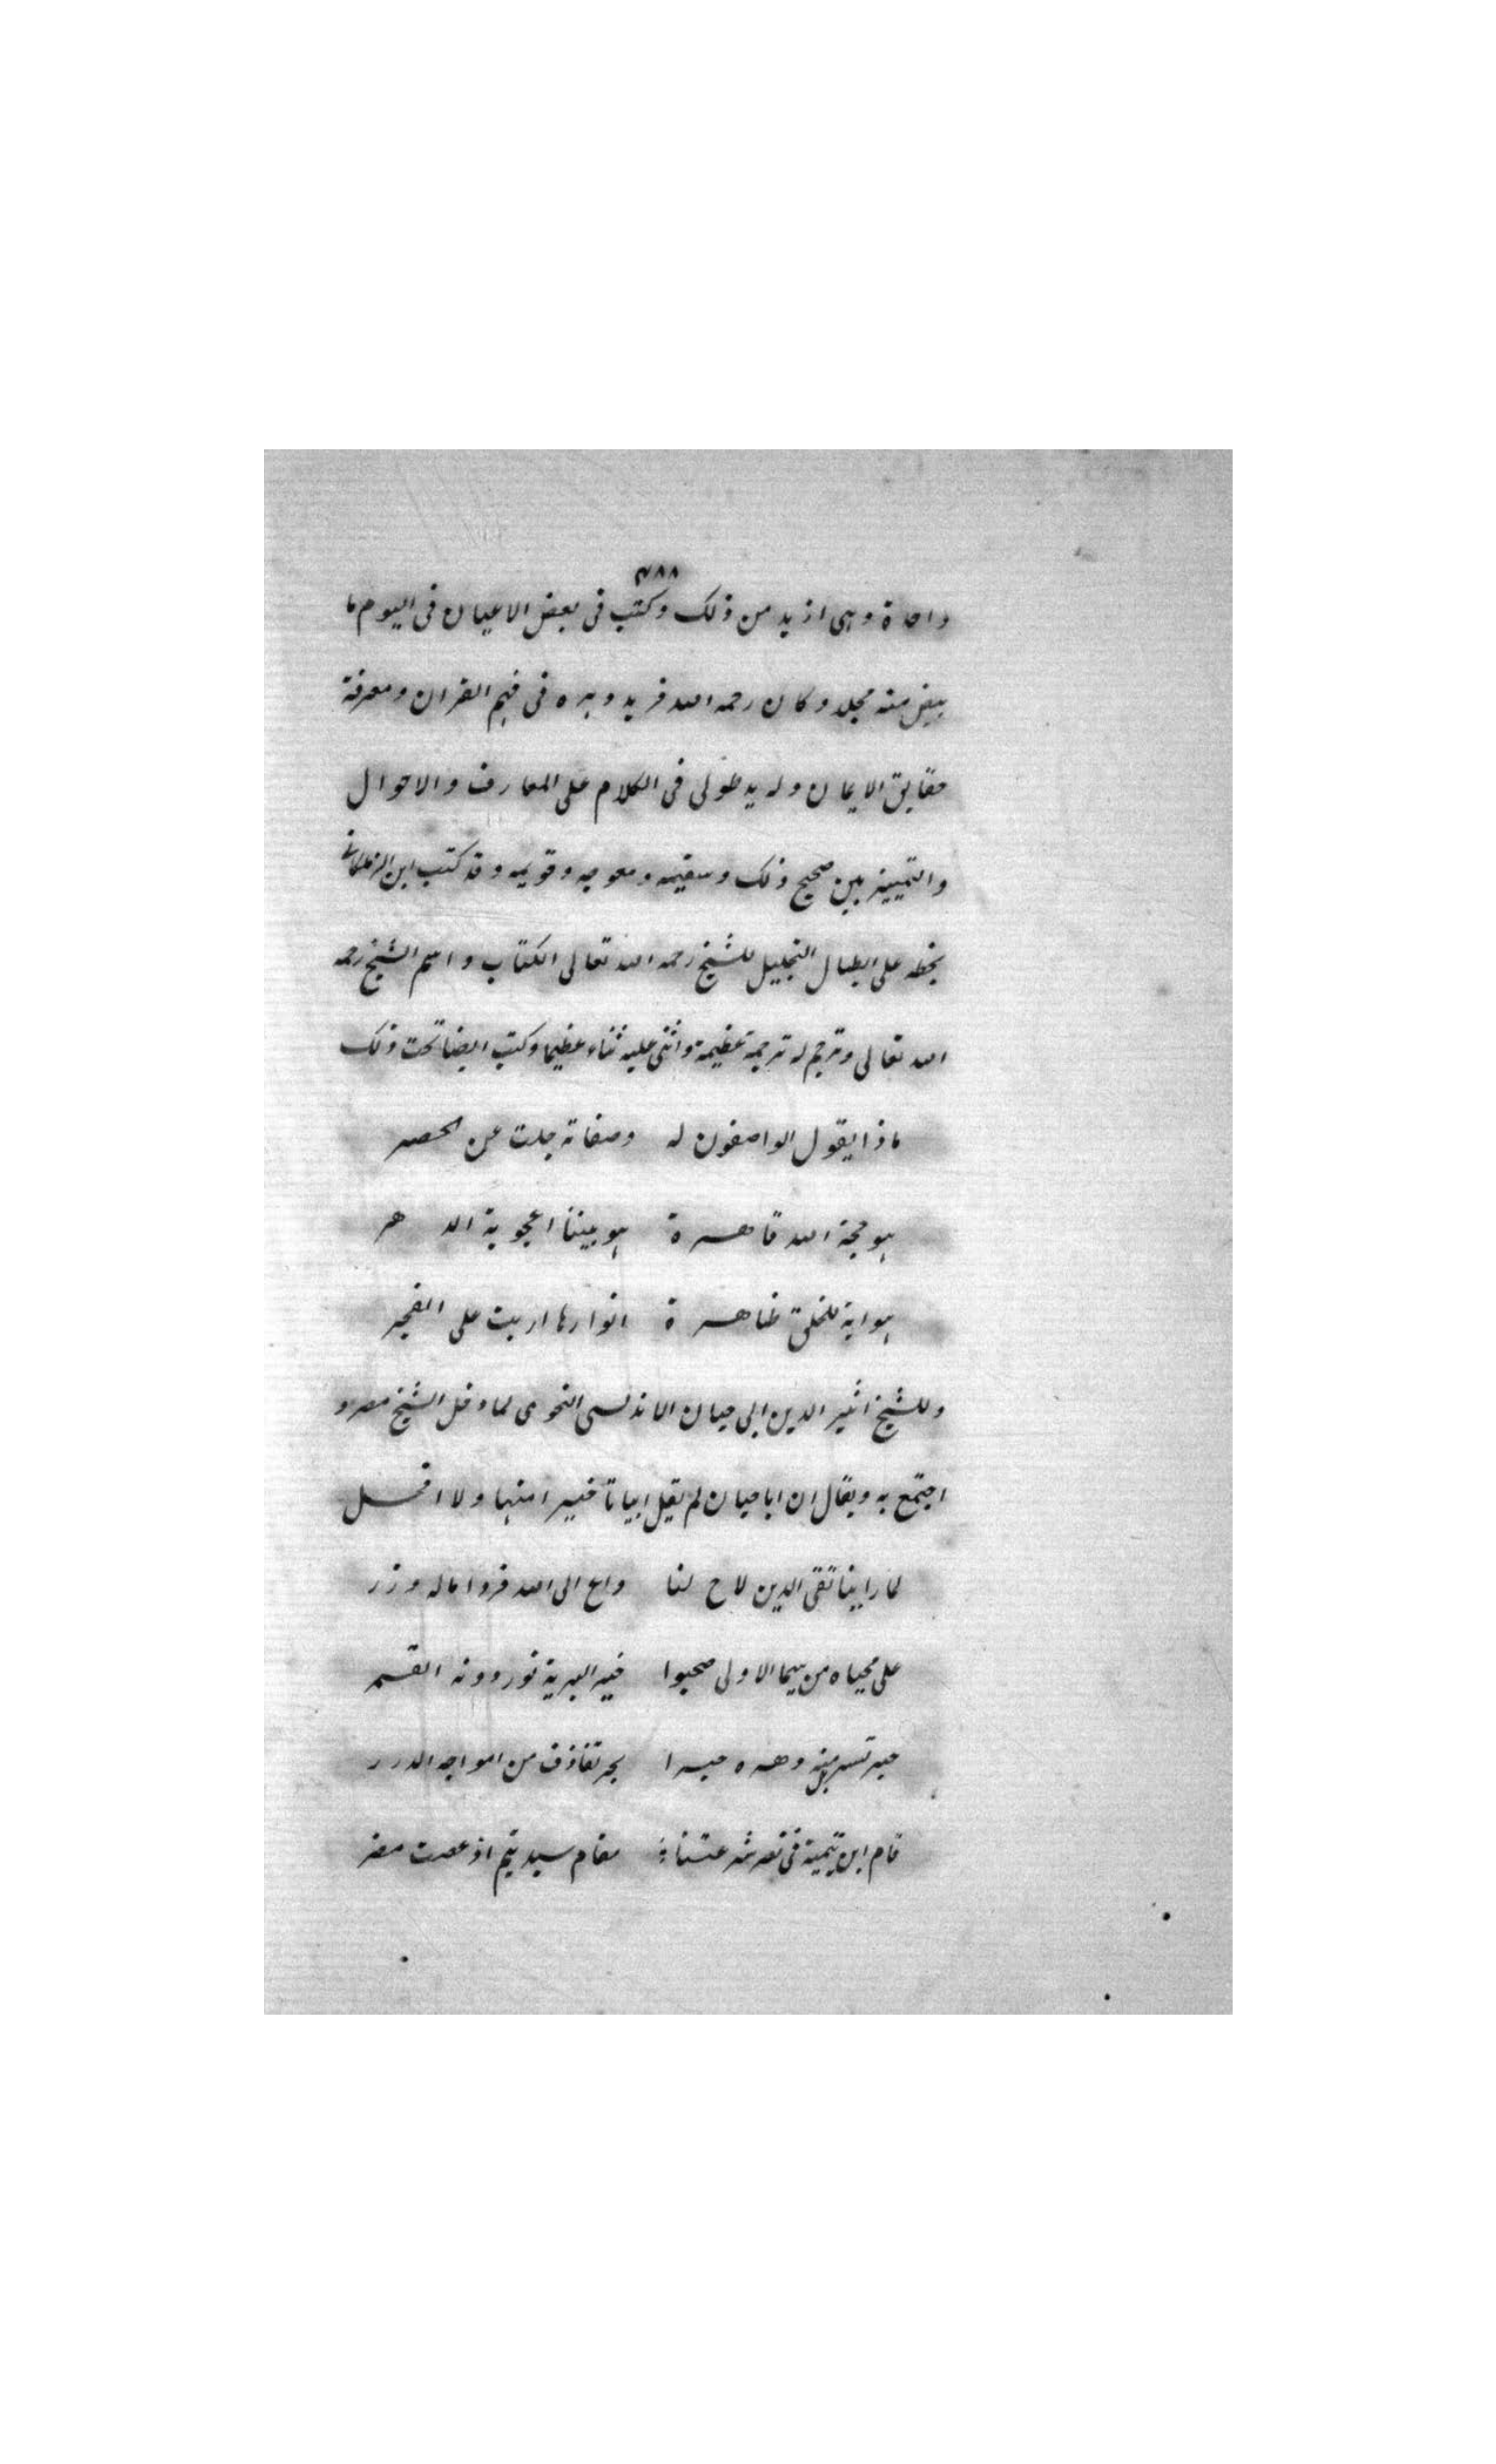 ٣٨٨
واحدة وهى ازيد من ذلك وكتب فى بعض الاعيان فى اليوم ما
يبيض منه مجلد وكان رحمه الله فريد دهره فى فهم القران ومعرفة
حقايق الايمان وله يد طولى فى الكلام على المعارف والاحوال
والتمييز بين صحيح ذلك وسقيمه ومعوجه وقويمه وقد كتب ابن الزملكانى
بخطه على ابطال التحليل للشيخ رحمه الله تعالى الكتاب واسم الشيخ رحمه
الله تعالى وترجم له ترجمة عظيمة واثنى عليه ثناء عظيما وكتب ايضا تحت ذلك
ماذا يقول الواصفون له وصفاته جلت عن الحصر
هو حجة الله قاهرة هو بيننا اعجوبة الدهر
هو اية للخلق ظاهرة انوارها اربت على الفجر
وللشيخ اثير الدين ابى حيان الاندلسى النحوى لما دخل الشيخ مصر و
اجتمع به ويقال ان ابا حيان لم يقل ابياتا خيرا منها ولا افحل
لما راينا تقى الدين لاح لنا داع الى الله فردا ماله وزر
على محياه من سيما الاولى صحبوا خير البرية نور دونه القمر
حبر تسربل منه دهره حبرا بحر تقاذف من امواجه الدرر
قام ابن تيمية فى نصر شرعتنا مقام سيد تيم اذ عصت مضر